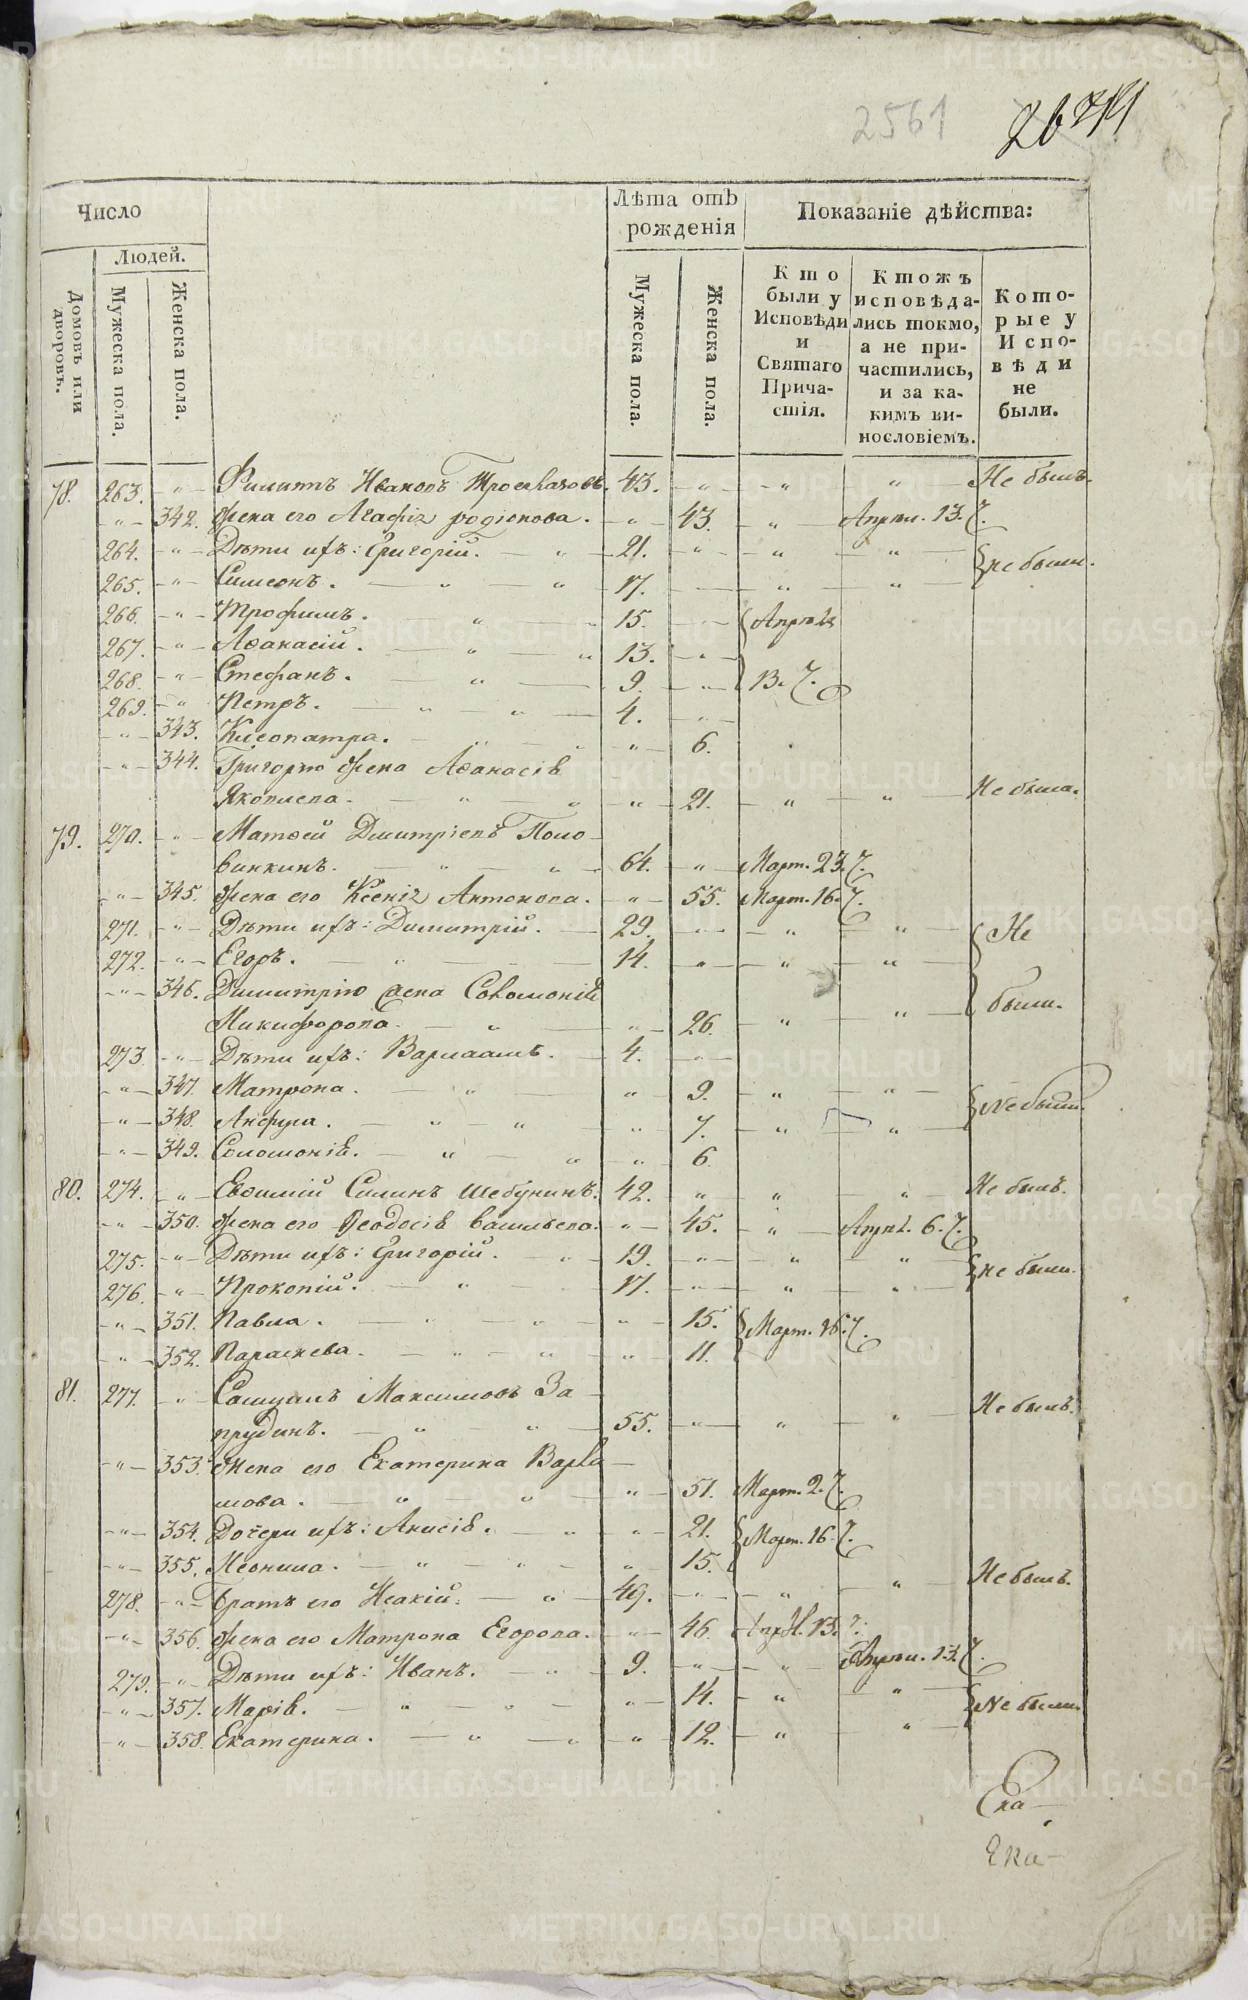 2561
Число
Лѣта отъ рожденія
Показаніе дѣйства:
Людей.
Домовъ или дворовъ.
Мужеска пола.
Женска пола.
Мужеска пола.
Женска пола.
Кто были у Исповѣди и Святаго Причастія.
Ктожъ исповѣдались токмо, а не причастились, и за какимъ винословіемъ.
Которые у Исповѣди не были.
78. 263. Филипъ Ивановъ 43. Не былъ.
342. жена его Агафія родіонова. 43. Апрѣл. 13.
264. Дѣти ихъ: Григорій. 21. не были.
265. Симеонъ. 17.
266. Трофимъ. 15. Апрѣля
267. Аѳанасій. 13.
268. Стефанъ. 9. 13.
269. Петръ. 4.
343. Клеопатра. 6.
344. Григорію жена Аѳанасія
Яковлева. 21. Не была.
79. 270. Матѳей Дмитріевъ Поло-
винкинъ. 64. Март. 23.
345. жена его Ксенія Антонова. 55. Март. 16.
271. Дѣти ихъ: Димитрій. 29. Не
272. Егоръ. 14.
346. Димитрію жена Соломонія были.
Никифорова. 26.
273. Дѣти ихъ: Варлаамъ. 4.
347. Матрона. 9. Не были.
348. Анфуса. 7.
349. Соломонія. 6.
80. 274. Евѳимій Силинъ Шебунинъ. 42. Не былъ.
350. жена его Ѳеодосія васильева. 45. Апрѣл. 6.
275. Дѣти ихъ: Григорій. 19. не были.
276. Прокопій. 17.
351. Павла. 15. Март. 16.
352. Параскева. 11.
81. 277. Самуилъ Максимовъ За-
прудинъ. 55. Не былъ.
353. жена его Екатерина Варла-
мова. 51. Март. 2.
354. Дочери ихъ: Анисія. 21. Март. 16.
355. Неонила. 15.
278. Братъ его Исакій. 49. Не былъ.
356. жена его Матрона Егорова. 46. Апрѣл. 13.
279. Дѣти ихъ: Иванъ. 9.
357. Марія. 14. Не были.
358. Екатерина. 12.
Ека-
Ека-
METRIKI.GASO-URAL.RU